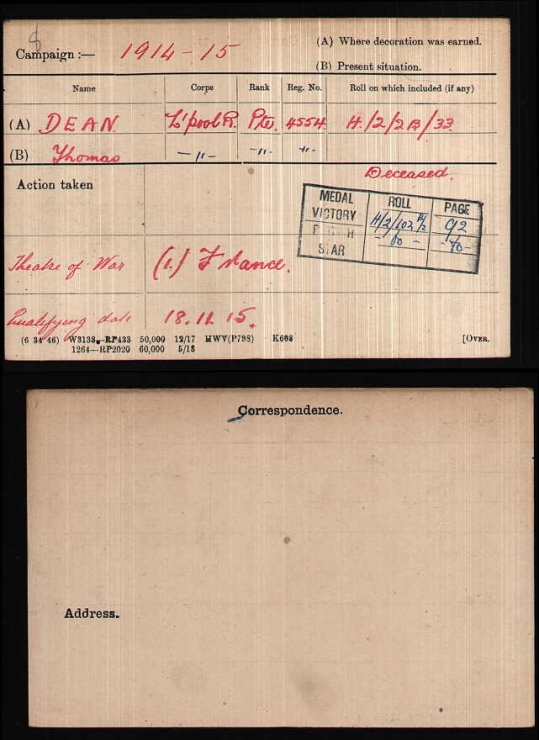 8
Campaign :— 1914-15
(A) Where decoration was earned.
(B) Present situation.
Name Corps Rank Reg. No. Roll on which included (if any)
(A) DEAN L'pool R. Pte. 4554 H/2/2B/33
(B) Thomas —"— -"- -"-
Deceased.
Action taken
MEDAL ROLL PAGE
VICTORY H/2/102 92
-Do- -Do-
STAR
Theatre of War (1.) France.
Qualifying date 18.11.15.
(6 34 46) W3133—RP433 50,000 12/17 HWV(P798) K608 [OVER.
1264—RP2020 60,000 5/18
Correspondence.
Address.